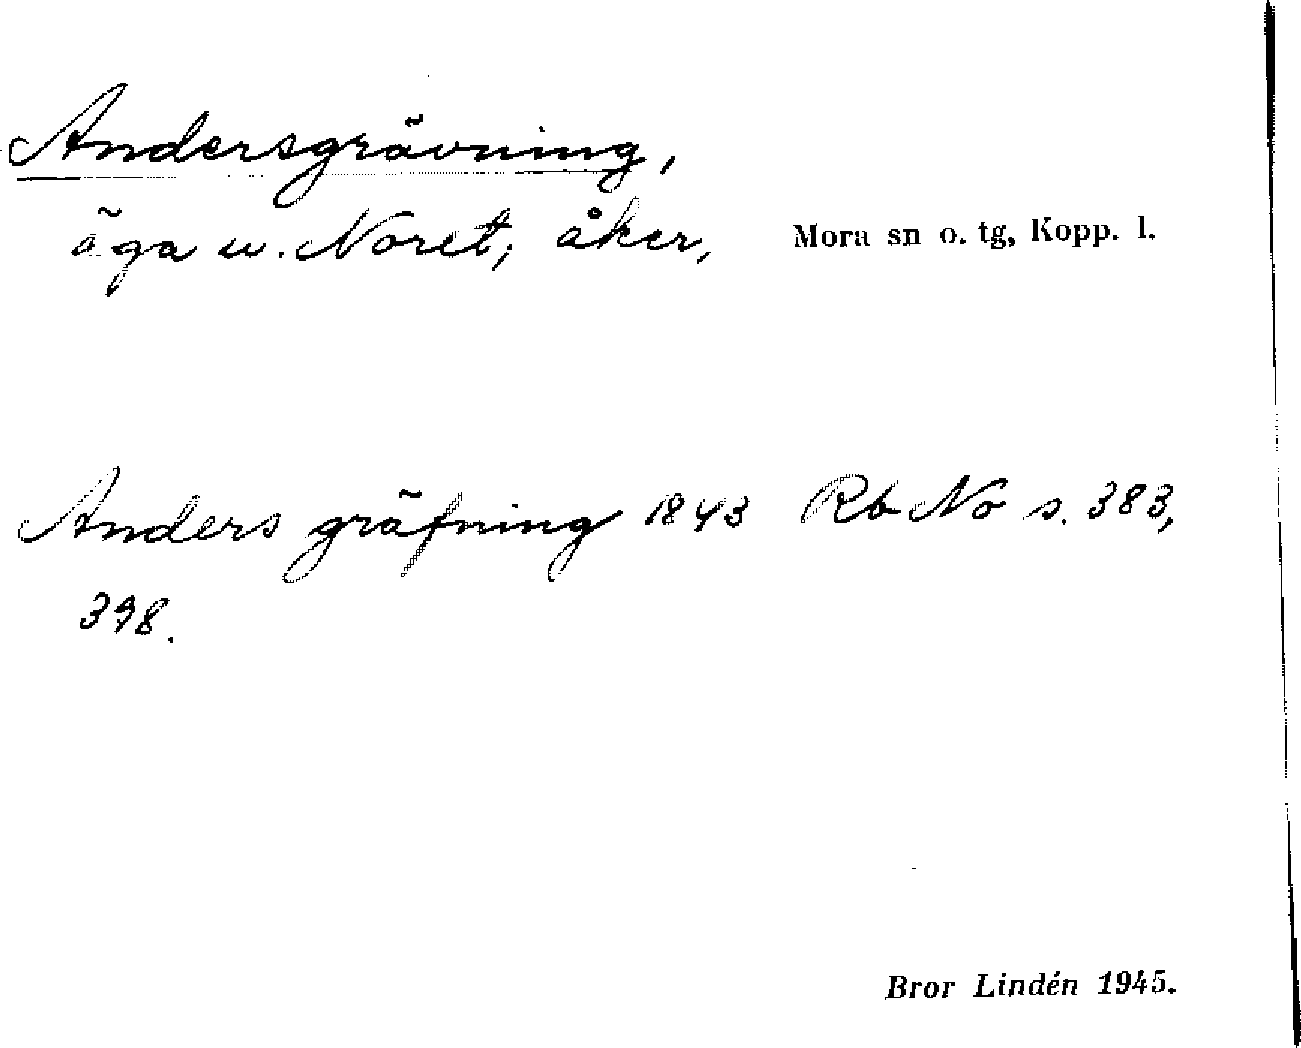 Andersgrävning,
äga u. Noret, åker, Mora sn o. tg, Kopp. l.
Anders gräfning 1843 Rb No s. 383,
398.
Bror Lindén 1945.